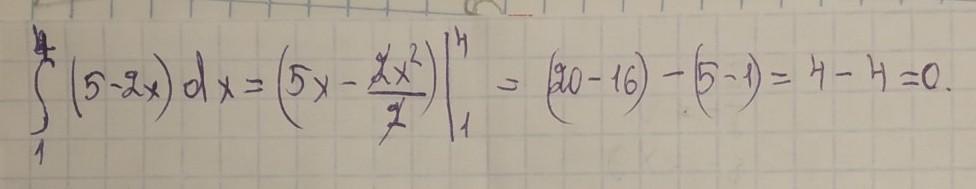 ∫₁⁴ (5-2x) dx = (5x - 2x²/2) |₁⁴ = (20-16) - (5-1) = 4 - 4 = 0.